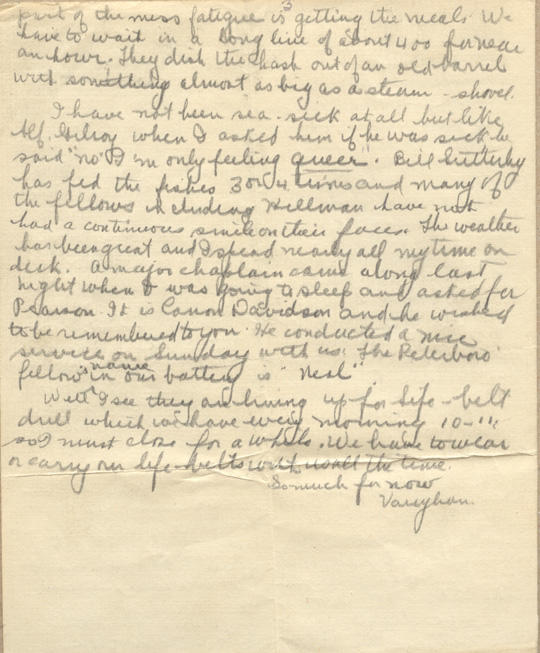 part of the mess fatigues is getting the meals. We
have to wait in a long line of about 400 for near
an hour. They dish the hash out of an old barrel
with something almost as big as a steam-shovel.
I have not been sea-sick at all but like
Alf. Gilroy when I asked him if he was sick he
said "no I'm only feeling queer". Bill
has fed the fishes 3 or 4 times and many of
the fellows including Hillman have not
had a continuous smile on their faces. The weather
has been great and I spend nearly all my time on
deck. A major chaplain came along last
night when I was going to sleep and asked for
Pearson. It is Canon Davidson and he wished
to be remembered to you. He conducted a nice
service on Sunday with us. The Peterboro
fellow's name in our battery is "Neal".
Well I see they are lining up for life-belt
drill which we have every morning 10-11:
so I must close for a while. We have to wear
or carry our life-belts with us all the time.
So much for now
Vaughan.